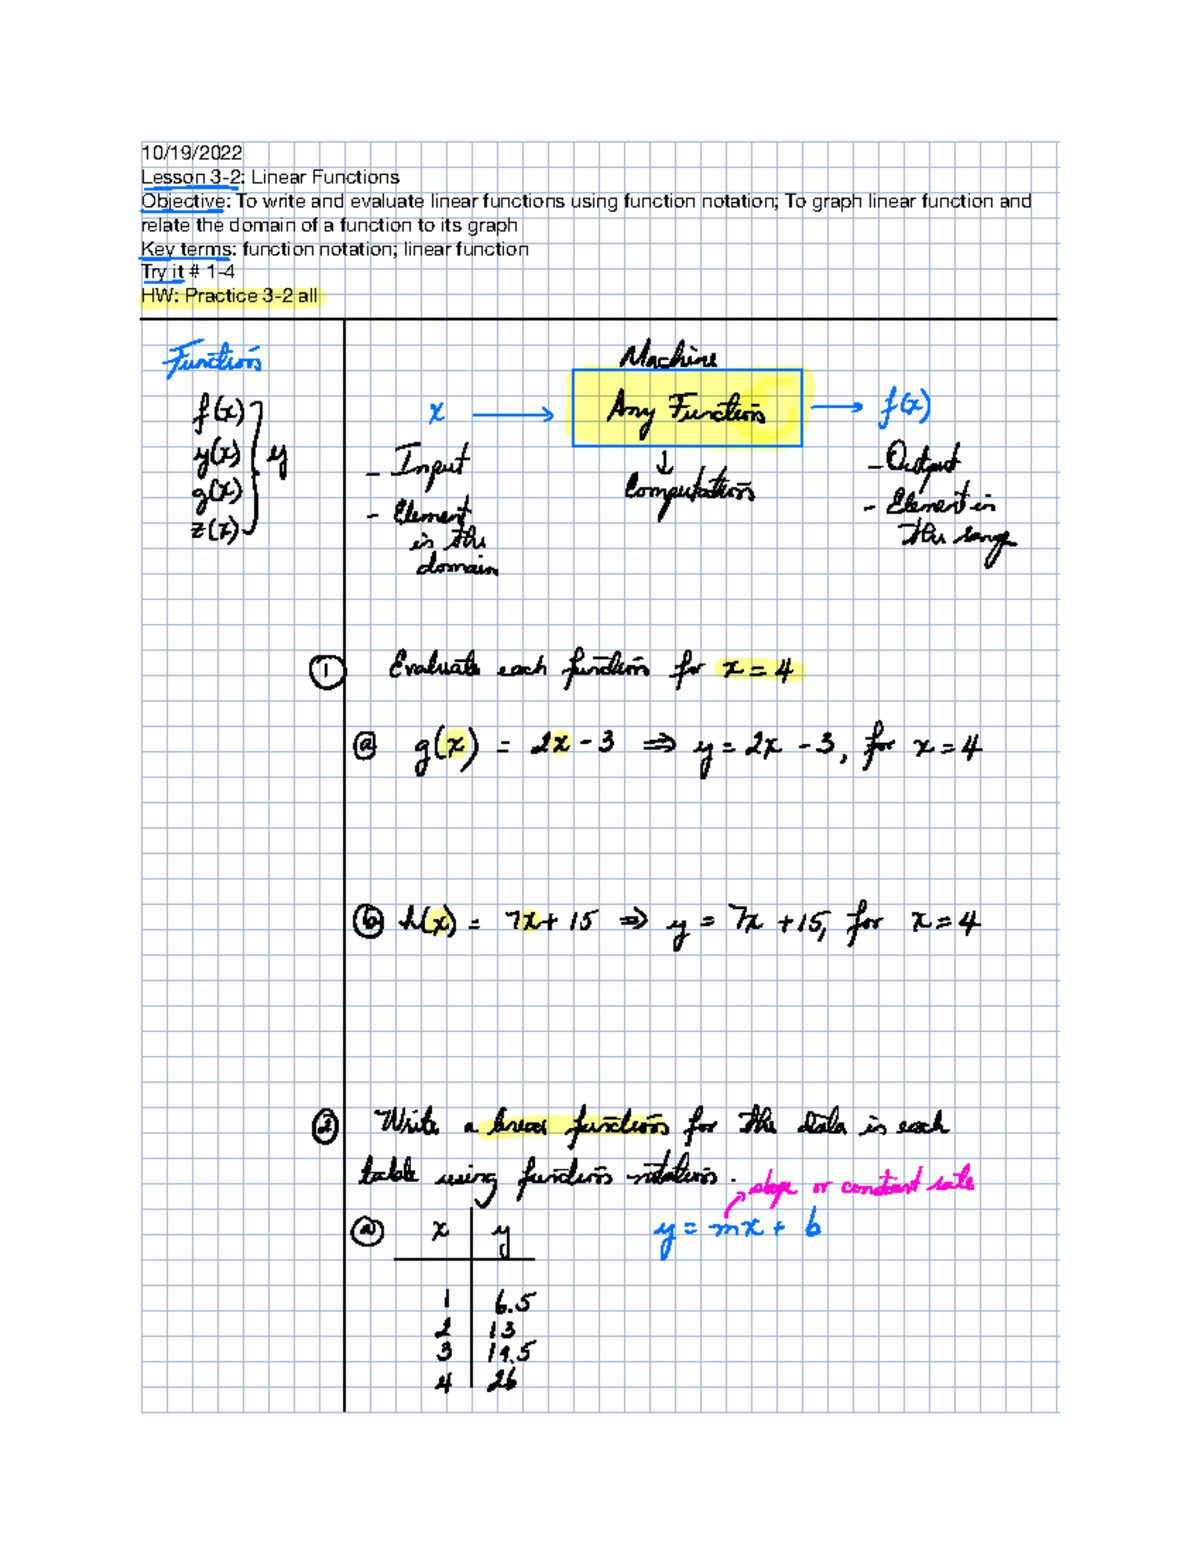 10/19/2022
Lesson 3-2: Linear Functions
Objective: To write and evaluate linear functions using function notation; To graph linear function and
relate the domain of a function to its graph
Key terms: function notation; linear function
Try it # 1-4
HW: Practice 3-2 all
Functions
f(x)
y(x)
g(x)
z(x)
} y
Machine
x → Any Function → f(x)
- Input
- Element
is the
domain
↓
Computation
- Output
- Element in
the range
① Evaluate each function for x = 4
ⓐ g(x) = 2x - 3 ⇒ y = 2x - 3, for x = 4
ⓑ h(x) = 7x + 15 ⇒ y = 7x + 15, for x = 4
② Write a linear function for the data in each
table using function notation.
slope or constant rate
y = mx + b
ⓐ x y
1 6.5
2 13
3 19.5
4 26